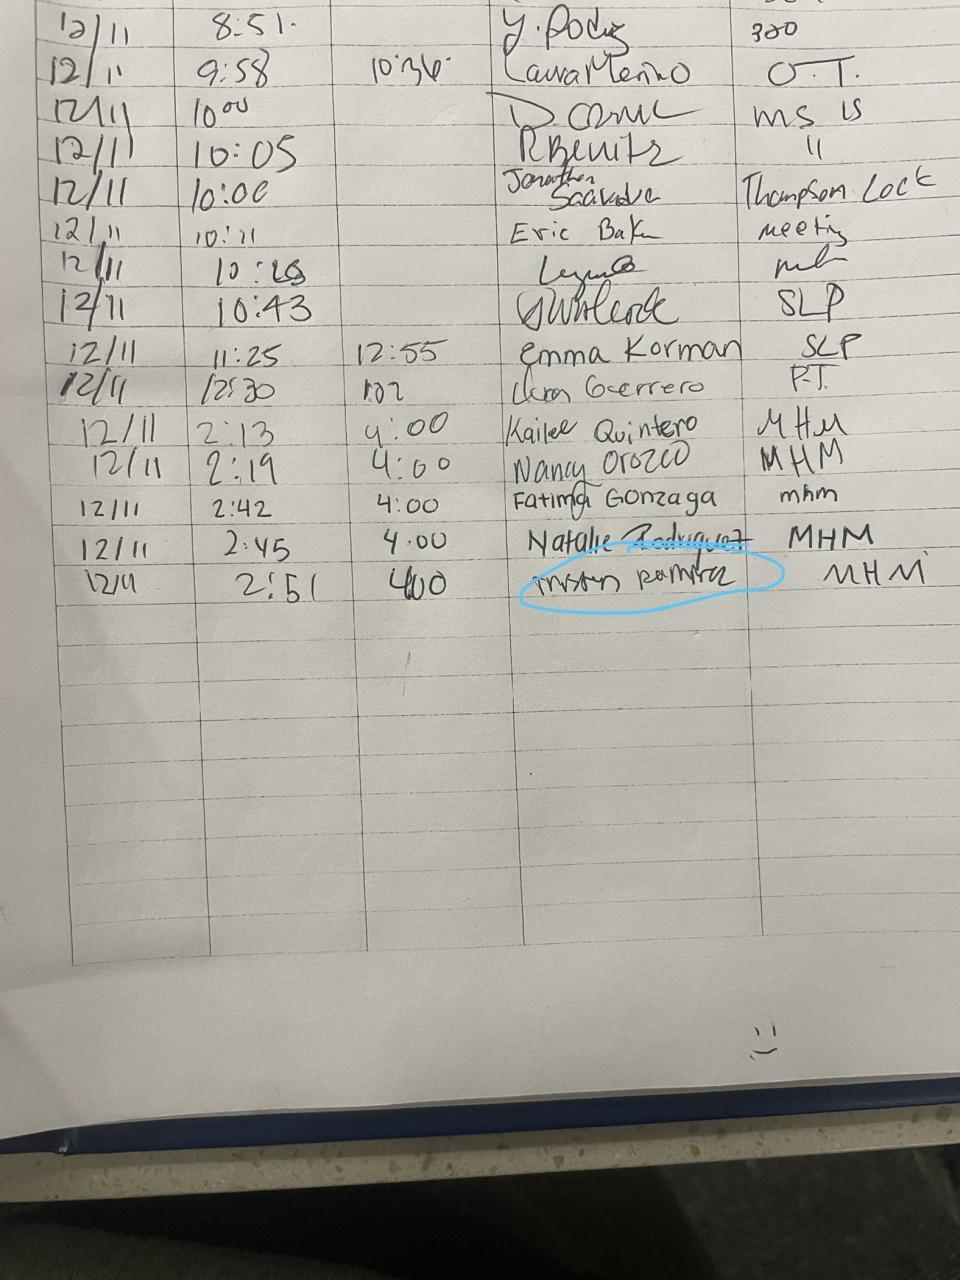 12/11 8:51 Y. Rodz 320
12/11 9:58 10:36 Laura Merino O.T.
12/11 10:00 MS IS
12/11 10:05 RBenitz "
12/11 10:00 Jonathan Saavedra Thompson Lock
12/11 10:11 Eric Bak meeting
12/11 10:28
12/11 10:43 SLP
12/11 11:25 12:55 Emma Korman SLP
12/11 12:30 1:02 Guerrero P.T.
12/11 2:13 4:00 Kailee Quintero MHM
12/11 2:19 4:00 Nancy Orozco MHM
12/11 2:42 4:00 Fatima Gonzaga mhm
12/11 2:45 4:00 Natalie Rodriguez MHM
12/11 2:51 400 Ramirez MHM